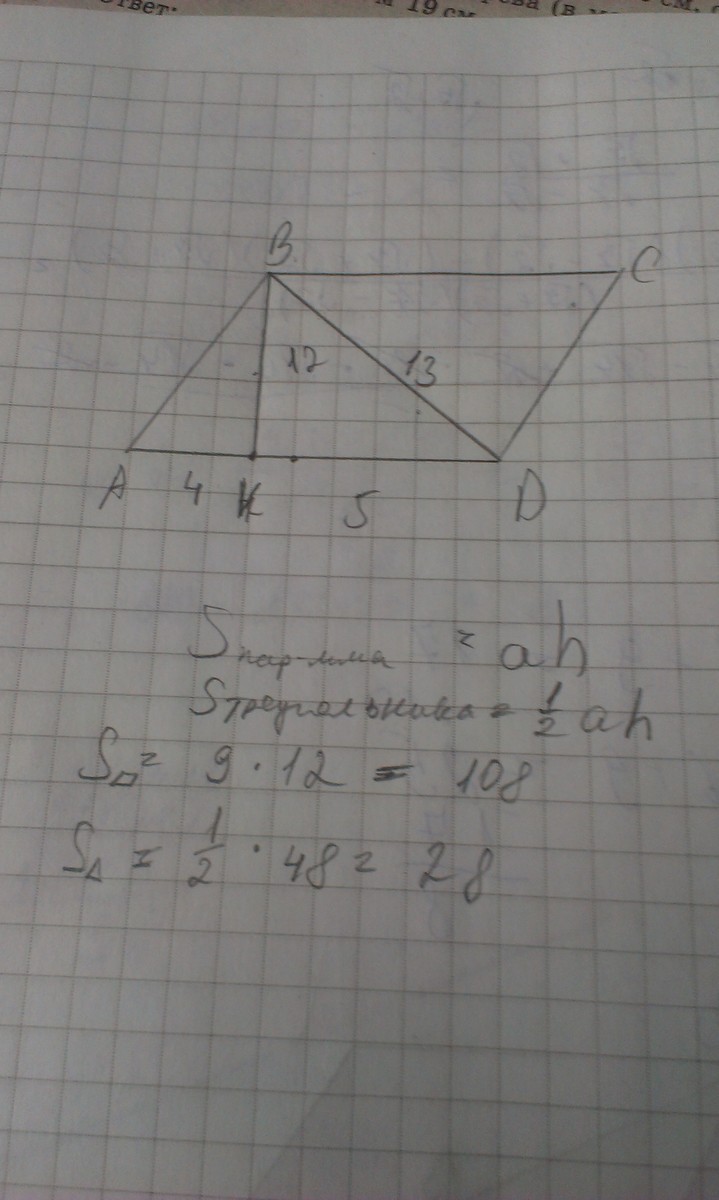 ответ.
м 19 см
B C
12 13
A 4 K 5 D
Sпар-мма = ah
Sтреугольника = 1/2 ah
S▱ = 9 · 12 = 108
S△ = 1/2 · 48 = 28